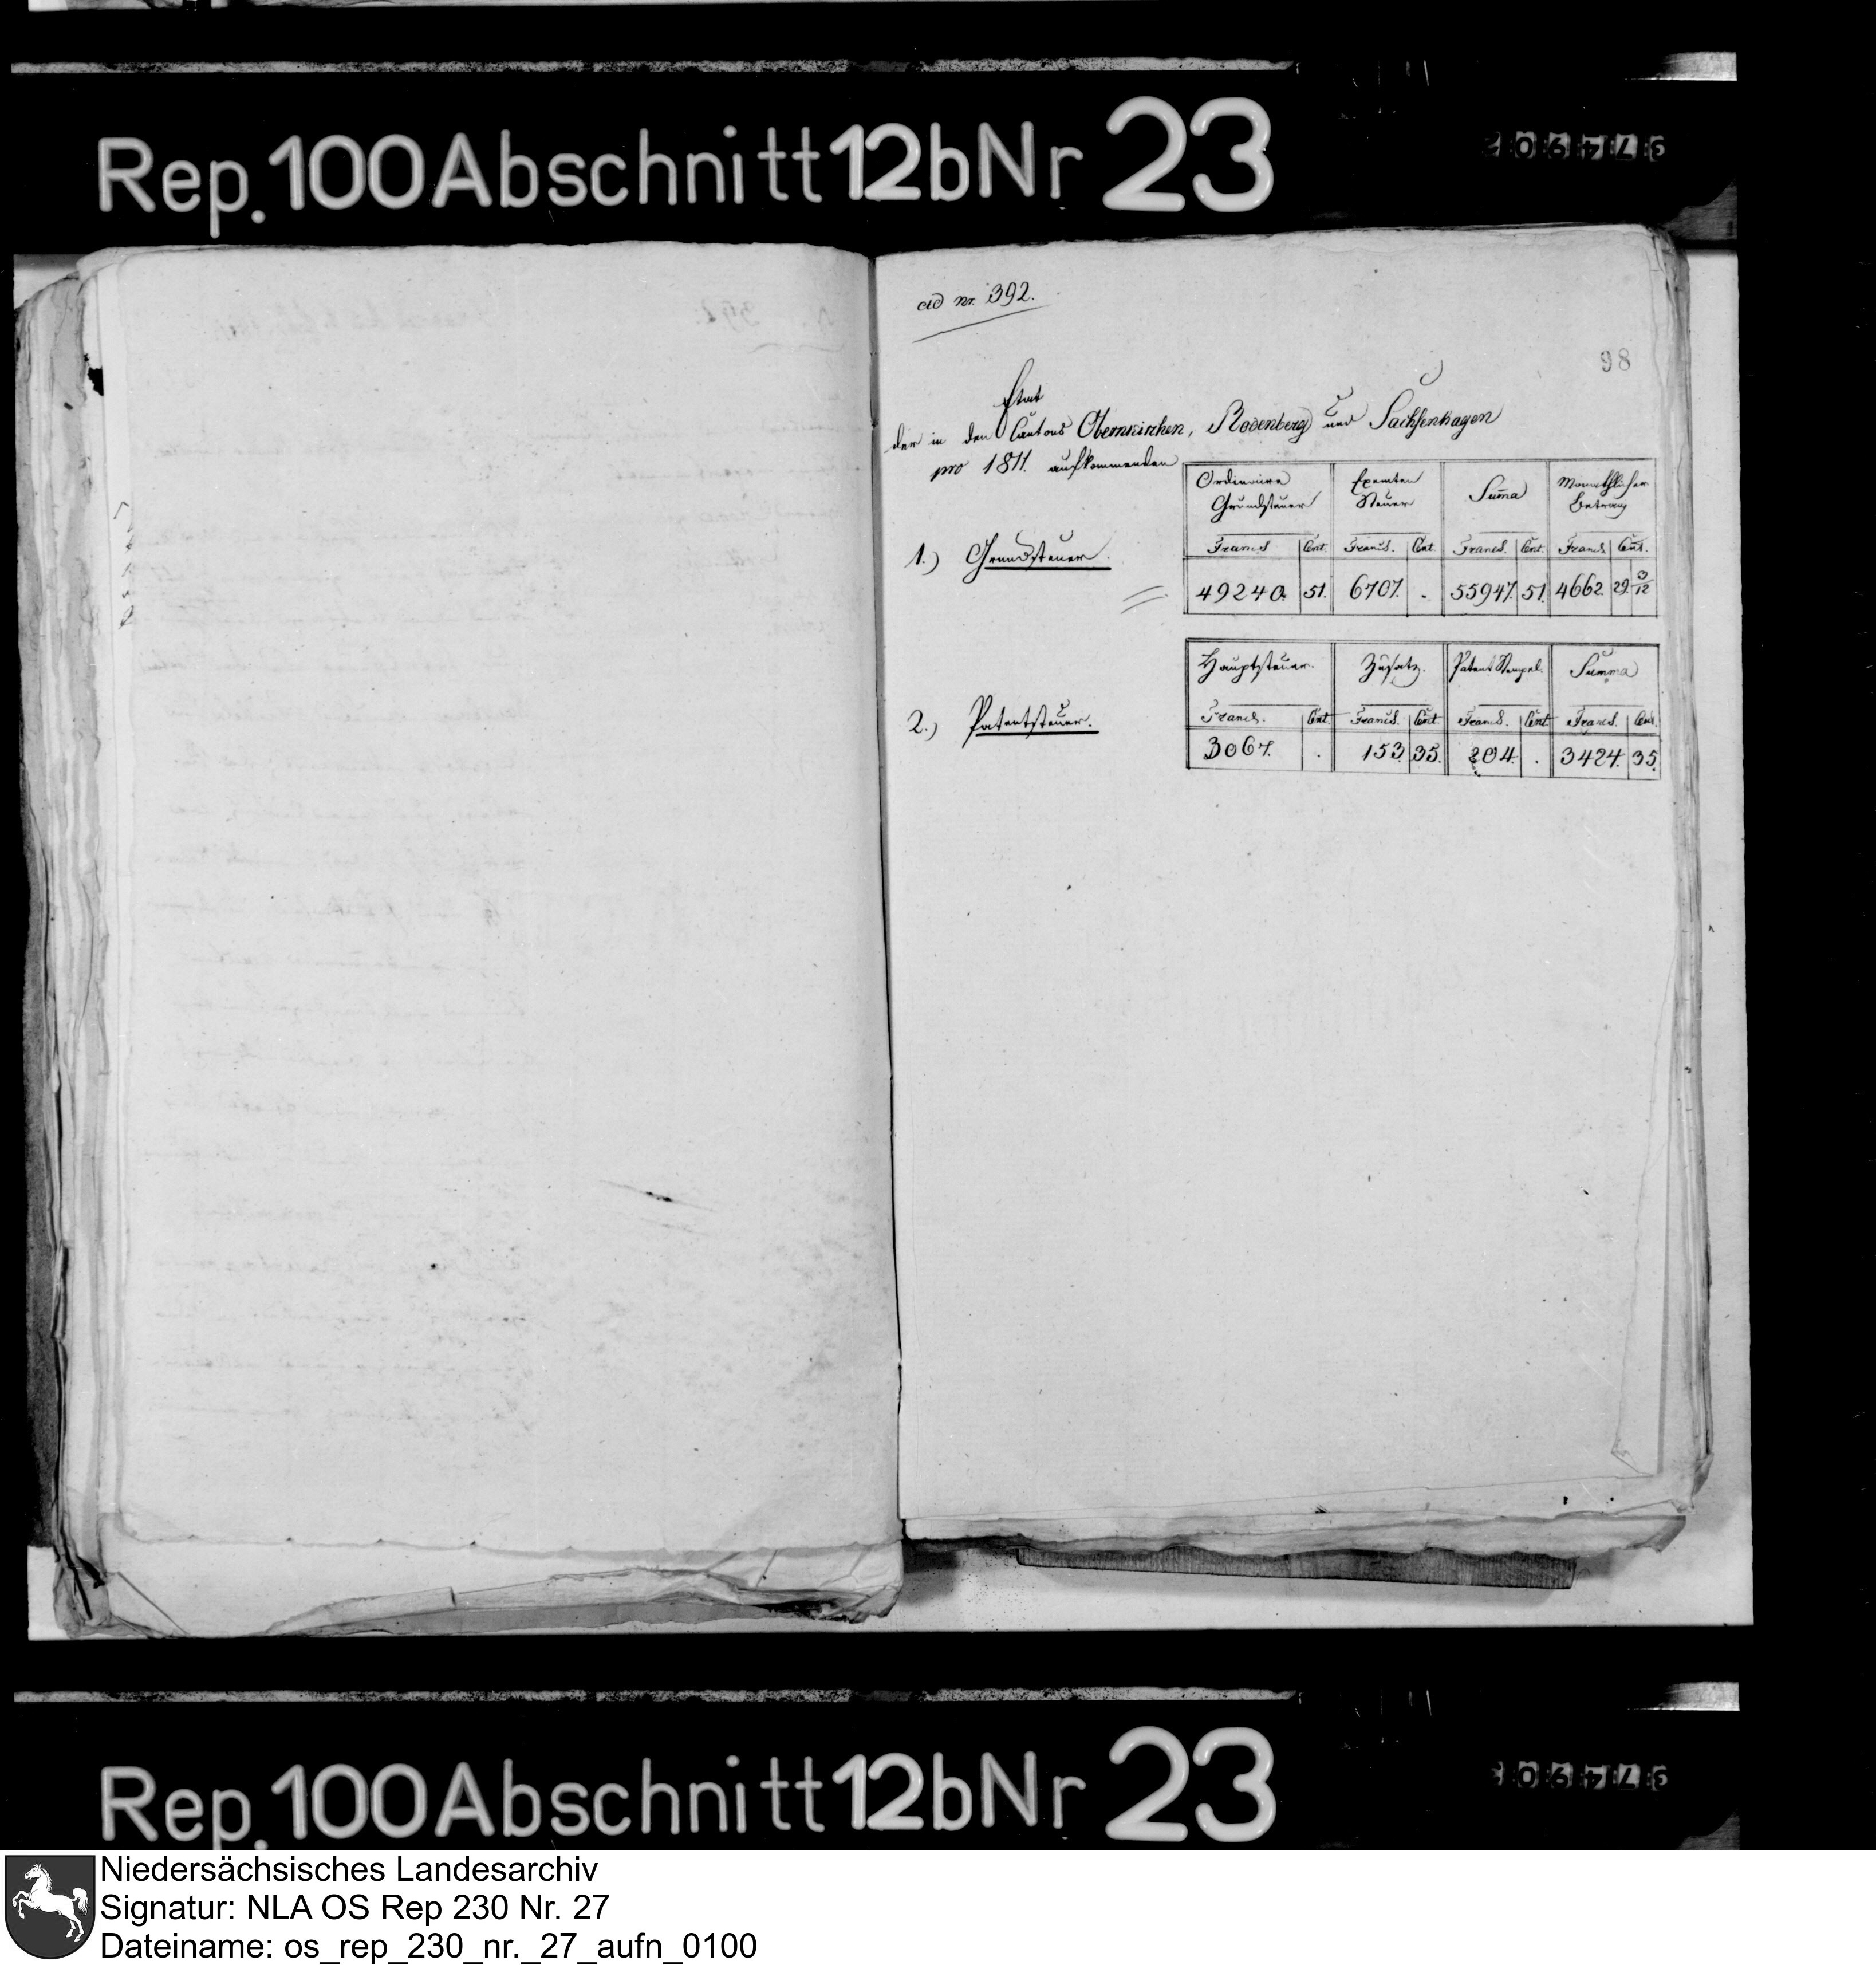 Rep. 100 Abschnitt 12b Nr 23
ad nr. 392.
98
Etat
der in den Cantons Obernkirchen, Rodenberg und Sachsenhagen
pro 1811. aufkommenden
1.) Grundsteuer.
Ordinaire Grundsteuer | Exemten Steuer | Suma | Monathlicher Betrag
Francs | Cent. | Francs. | Cent. | Francs. | Cent. | Francs | Cent.
49240. | 51. | 6707. | . | 55947. | 51. | 4662. | 29. 3/12
2.) Patentsteuer.
Hauptsteuer. | Zusatz. | Patent Stempel. | Summa
Francs. | Cent. | Francs. | Cent. | Francs. | Cent. | Francs. | Cent.
3067. | . | 153. | 35. | 204. | . | 3424. | 35.
Rep. 100 Abschnitt 12b Nr 23
Niedersächsisches Landesarchiv
Signatur: NLA OS Rep 230 Nr. 27
Dateiname: os_rep_230_nr._27_aufn_0100